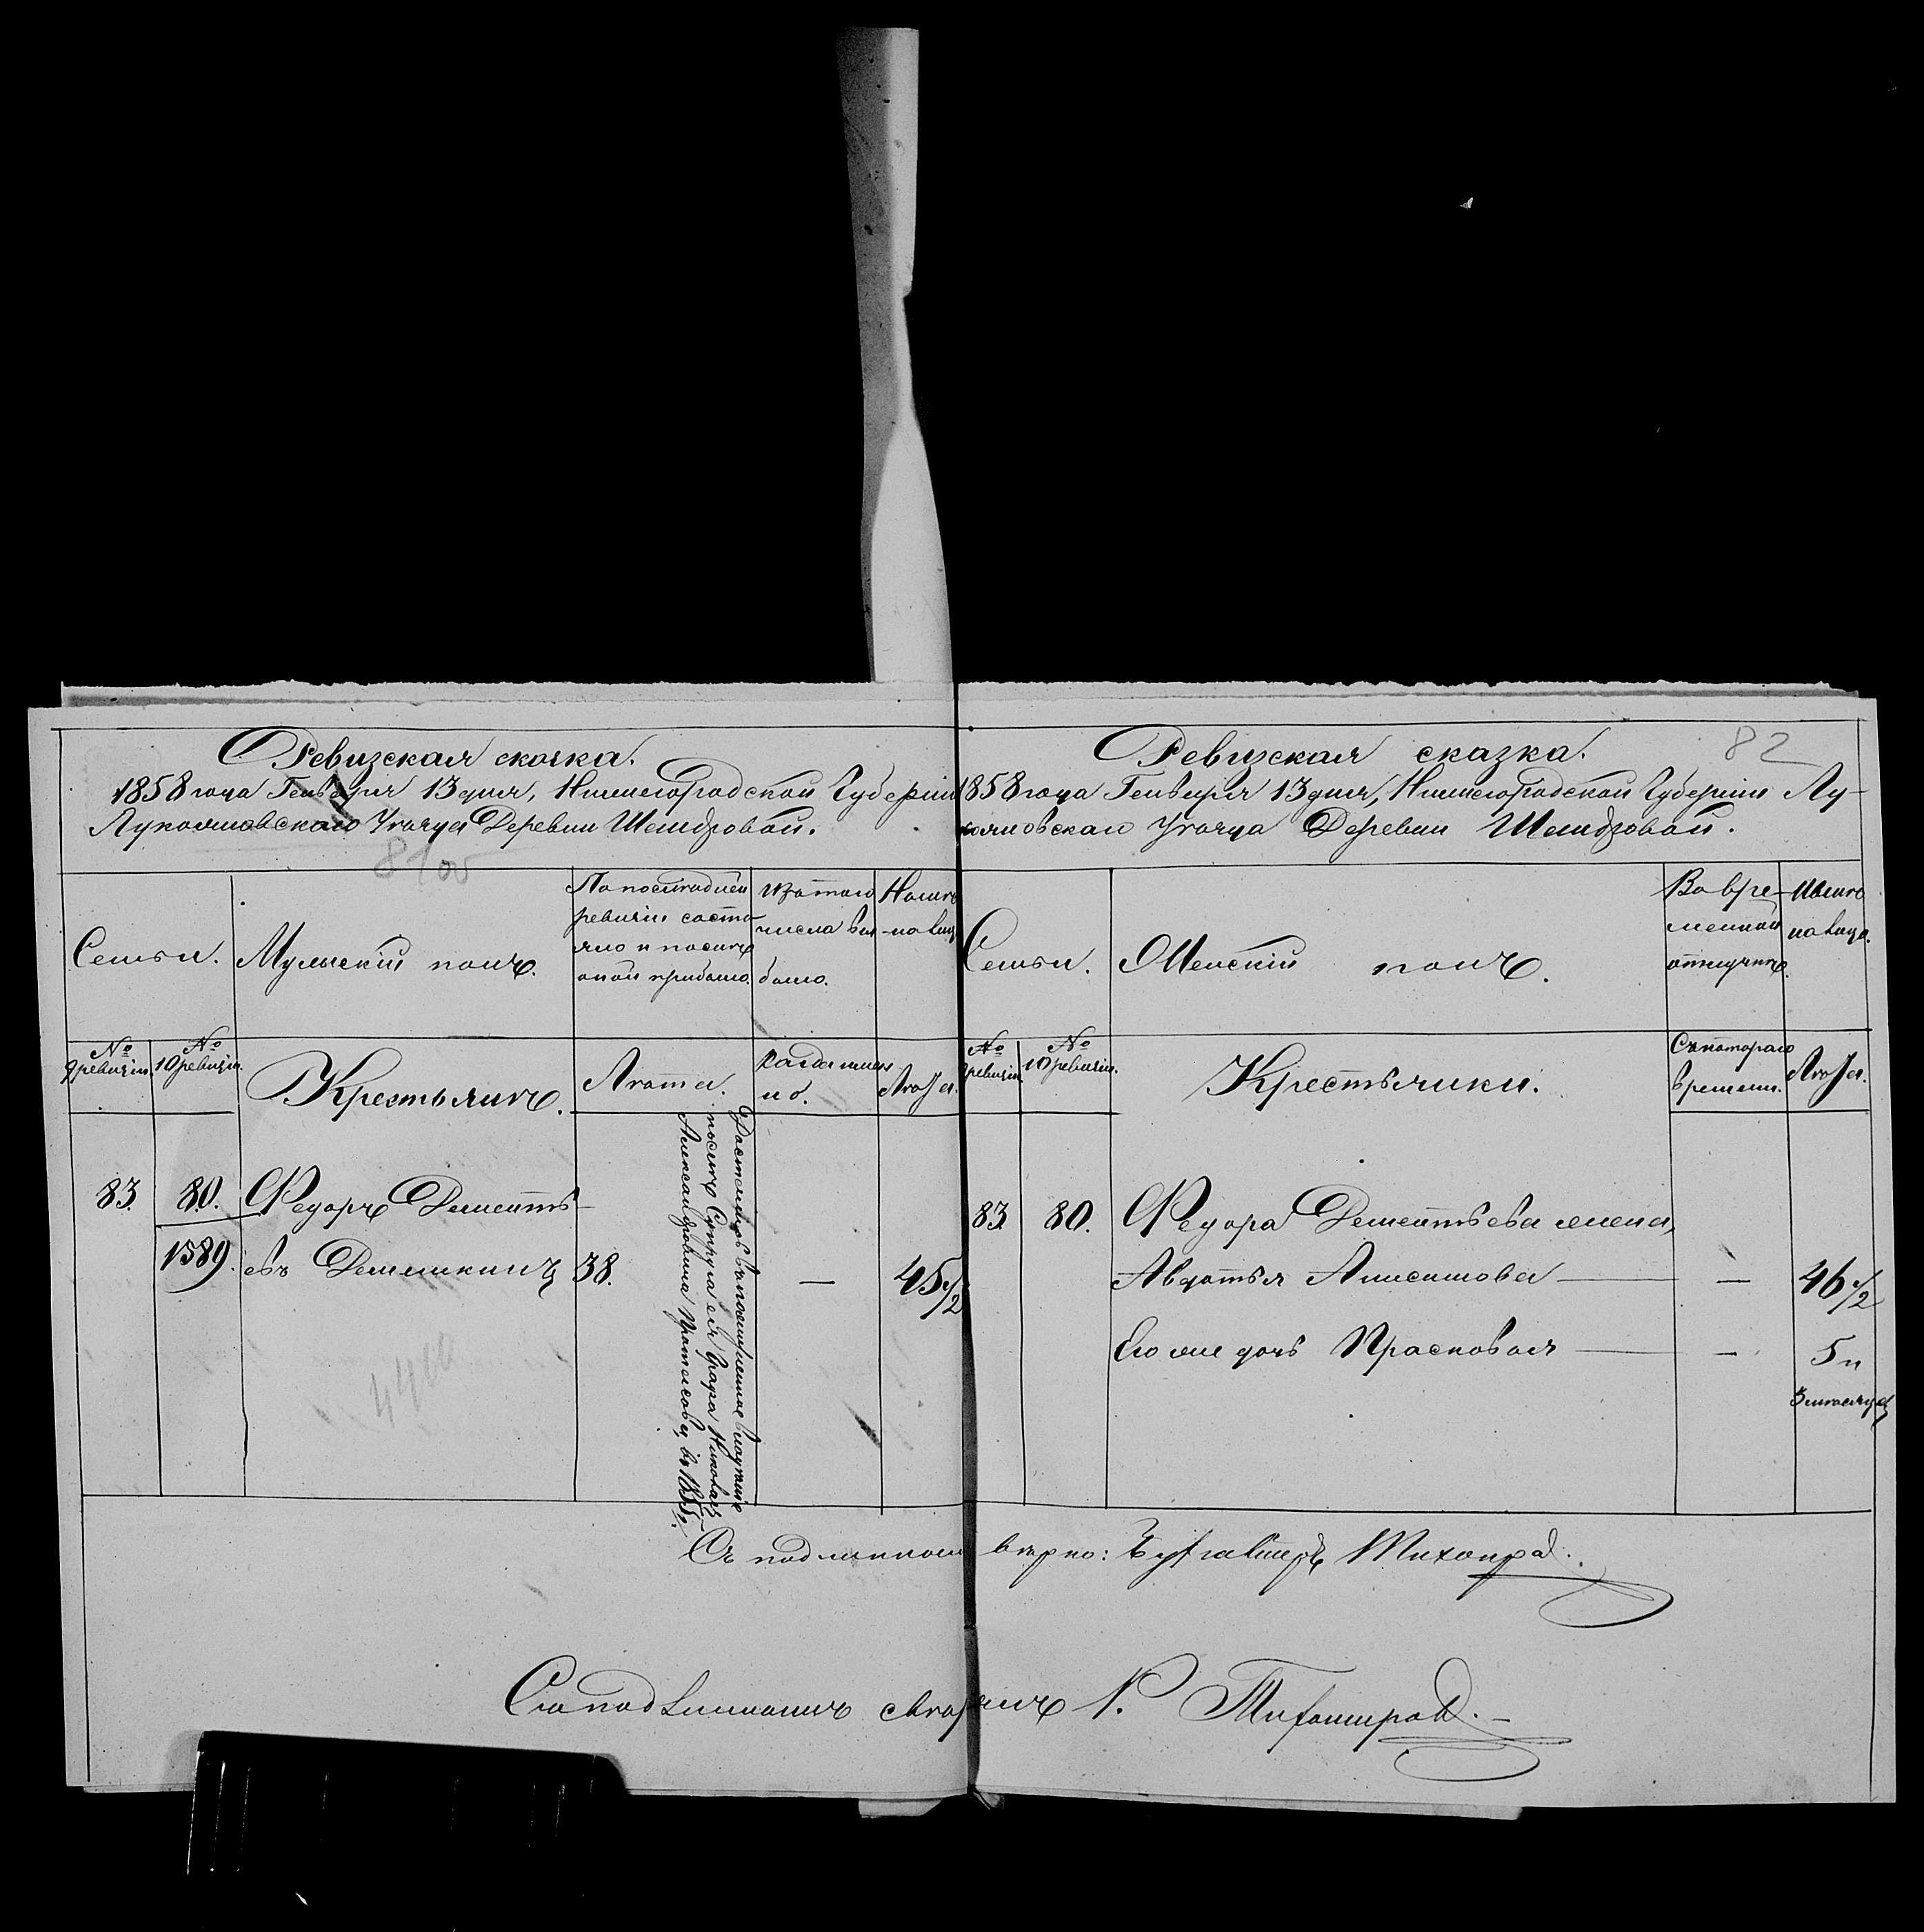 Ревизская скаска.
1858 года Генваря 13 дня, Нижегородской Губернии
Лукояновскаго Уезда Деревни Шандровой.
Семьи.
Мужескій полъ.
По последней
ревизіи состо-
яло и после
оной прибыло.
Изъ того
числа вы-
было.
Ныне
на лицо
№ 9 ревизіи.
№ 10 ревизіи.
Крестьяне.
Лета.
Когда имен-
но.
Лета.
83.
80.
Федоръ Дементь-
1589.
евъ Демашкинъ
38.
—
45 1/2
Александровна Протасова, въ 1855 г.
Ревизская сказка.
82
1858 года Генваря 13 дня, Нижегородской Губерніи Лу-
кояновскаго Уезда Деревни Шандровой.
Семьи.
Женскій полъ.
Во вре-
менной
отлучке.
Ныне
на лицо.
№ 9 ревизіи.
№ 10 ревизіи.
Крестьянки.
Съ котораго
времени.
Лета.
83.
80.
Федора Дементьева жена,
Авдотья Анисимова — — 46 1/2
Его же дочь Прасковья — — 5 и
3 месяца
Съ подлиннымъ верно: Бухгалтеръ Тихонра
Съ подлиннымъ сверялъ